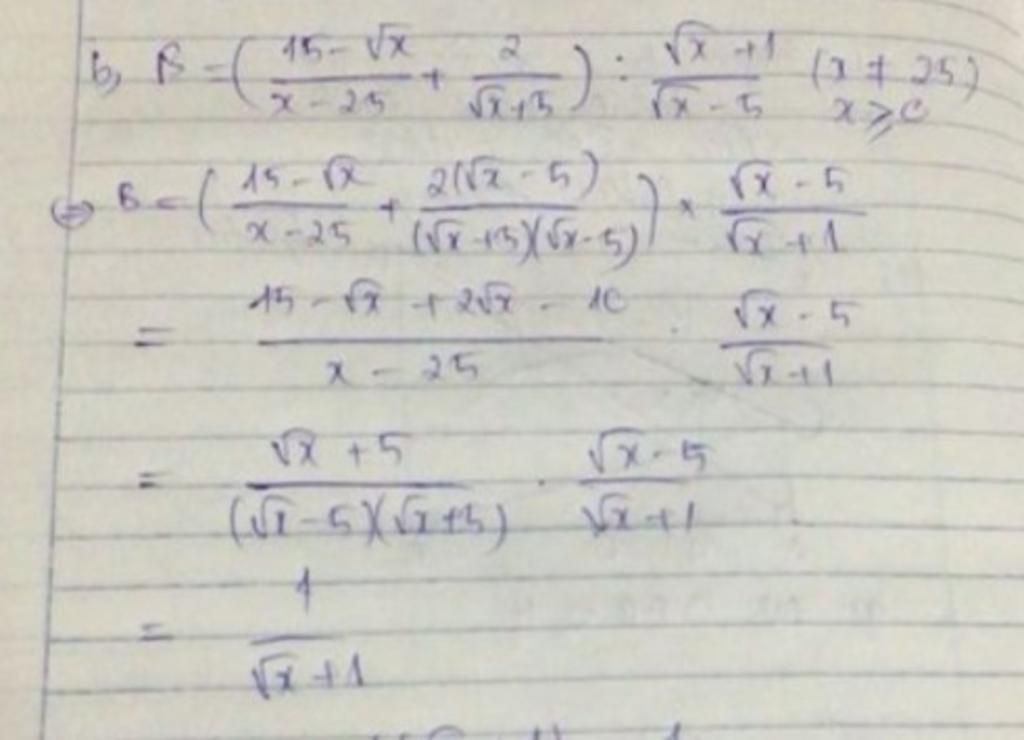 b, B = ( (15 - √x)/(x - 25) + 2/(√x + 5) ) : (√x + 1)/(√x - 5) (x ≠ 25)
x ⩾ 0
⇔ B = ( (15 - √x)/(x - 25) + 2(√x - 5)/((√x + 5)(√x - 5)) ) × (√x - 5)/(√x + 1)
= (15 - √x + 2√x - 10)/(x - 25) . (√x - 5)/(√x + 1)
= (√x + 5)/((√x - 5)(√x + 5)) . (√x - 5)/(√x + 1)
= 1/(√x + 1)